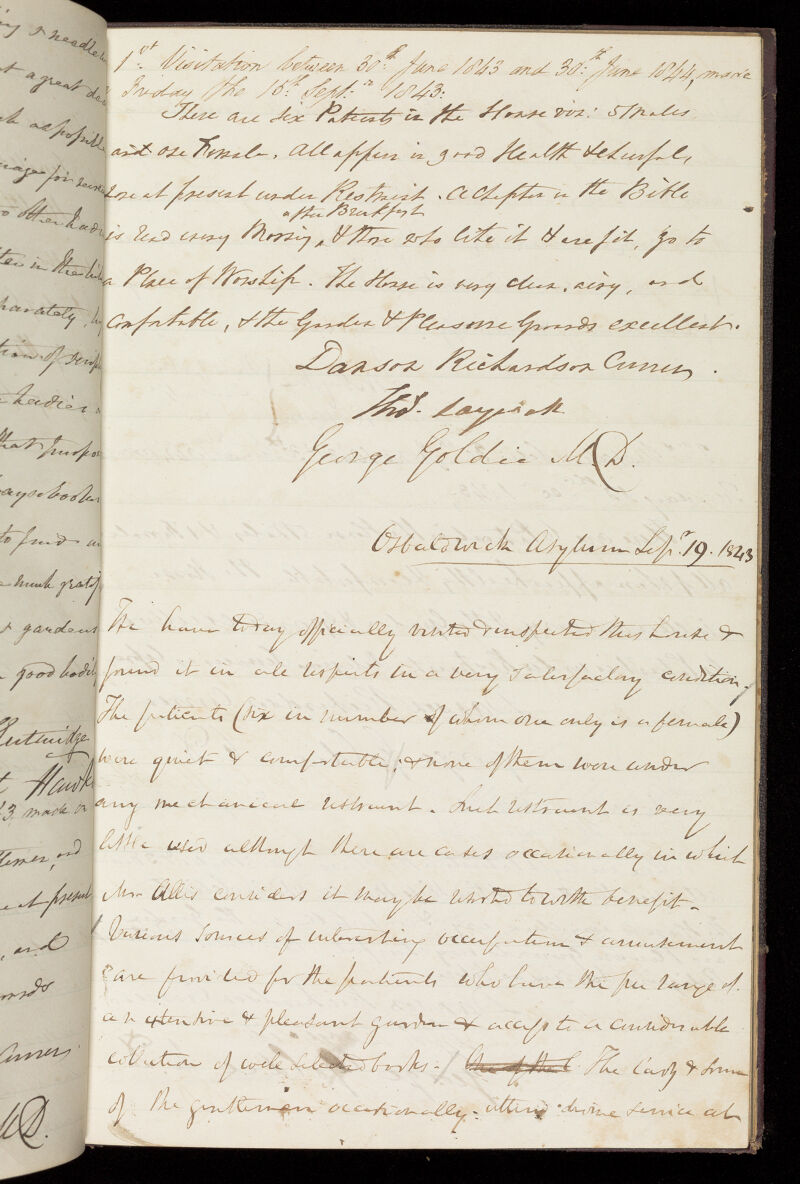 1st Visitation between 30th June 1843 and 30th June 1844, made
Friday the 15th Septr 1843:
There are Six Patients in the House viz: 5 Males
and one Female. All appear in good Health & cheerful,
none at present under Restraint. A Chapter in the Bible
after Breakfast
is read every Morning, & those who like it & are fit, go to
a Place of Worship. The House is very clean, airy, and
Comfortable, & the Garden & Pleasure Grounds excellent.
Danson Richardson Currer.
Thos.
George Goldie M.D.
Osbaldwick Asylum Sepr. 19. 1843
We have today officially visited & inspected this house &
found it in all respects in a very satisfactory condition,
The patients (six in number of whom one only is a female)
were quiet & comfortable; & none of them were under
any mechanical restraint. Such restraint is very
little used although there are cases occasionally in which
Mr Allis considers it may be resorted to with benefit.
Various sources of interesting occupation & amusement
are provided for the patients who have the free range of
an extensive & pleasant garden & access to a considerable
collection of well selected books. The Lady & some
of the gentlemen occasionally attend divine service at
ing & needlew
at a great de
as possible
for
to other
in the
parately,
tion of
Ladies
that purpo
books
to find
much gratif
gardens
good bodil
3, made on
at present
, and
Currer
M.D.